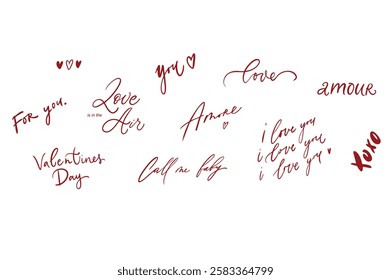 you
love
Love
is in the
Air
amour
For you.
Amore
i love you
i love you
i love you
xoxo
Valentines
Day
Call me baby
shutterstock.com · 2583364799